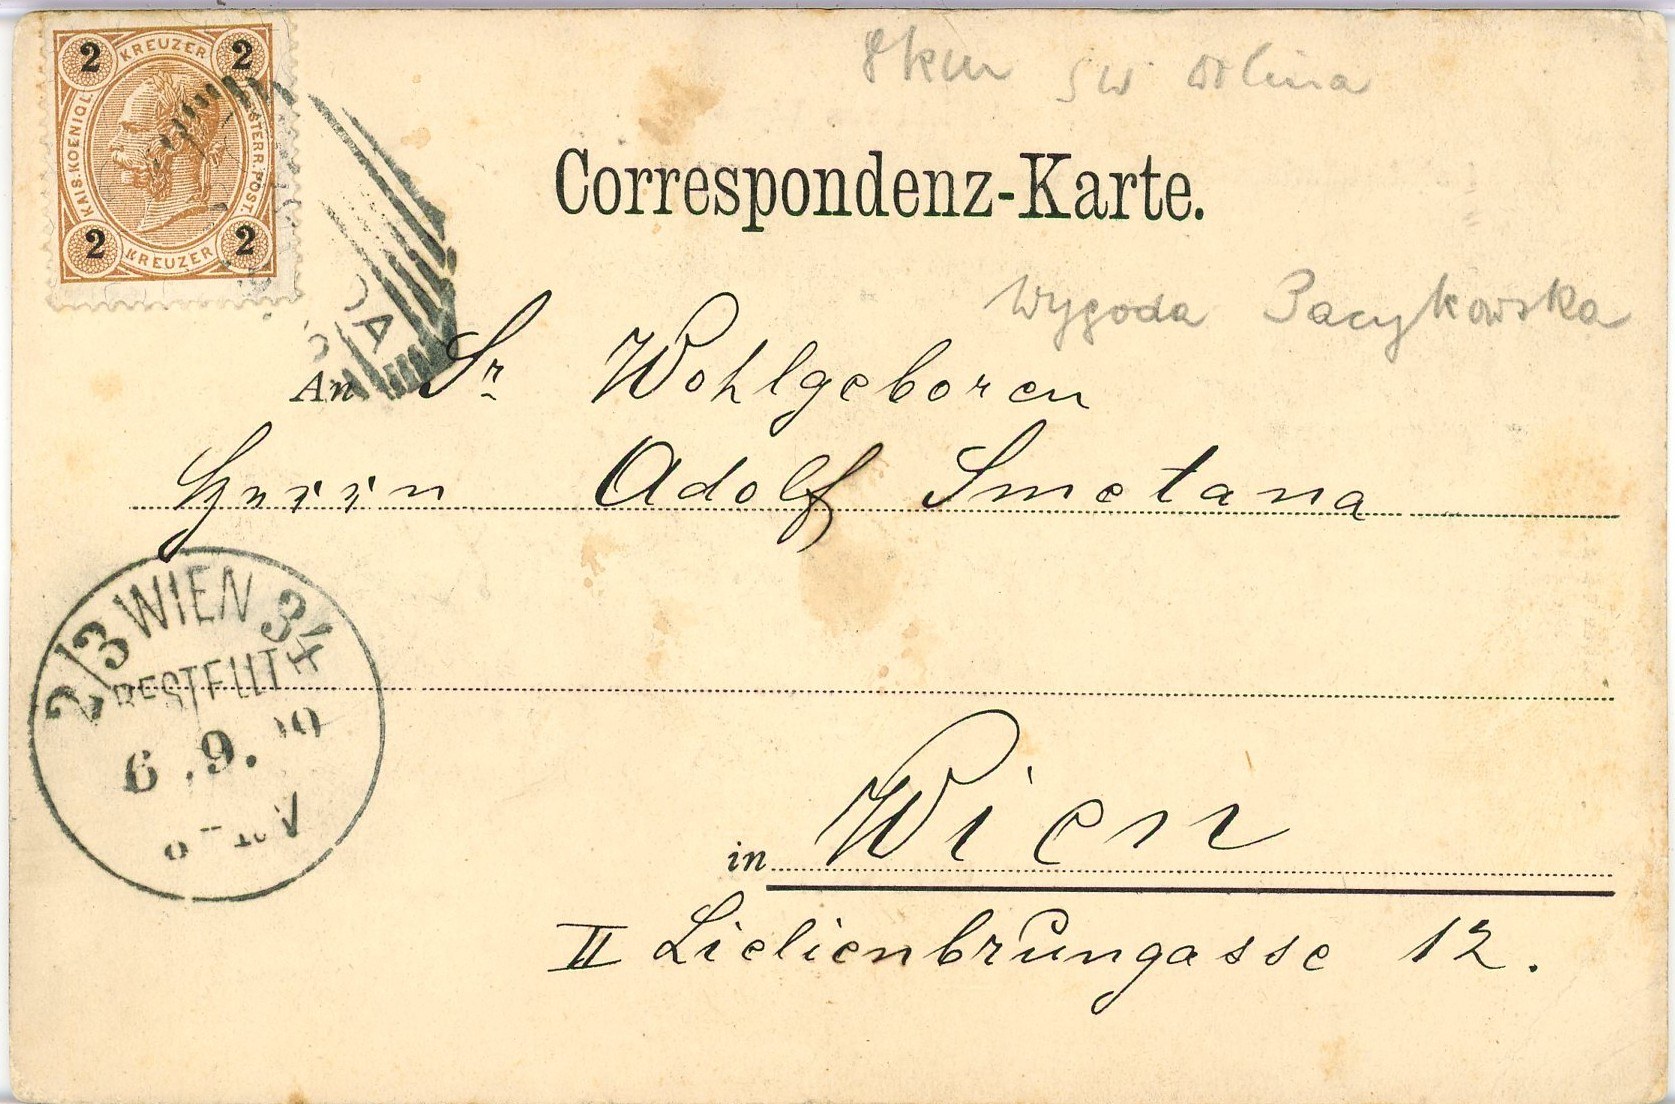 2 KREUZER 2
KAIS. KOENIGL. OESTERR. POST.
2 KREUZER 2
8km SW Dolina
Correspondenz-Karte.
Wygoda Pacykowska
An Sr Wohlgeboren
Herrn Adolf Smetana
2/3 WIEN 34
BESTELLT
6.9.00
V
in Wien
II Lielienbrungasse 12.